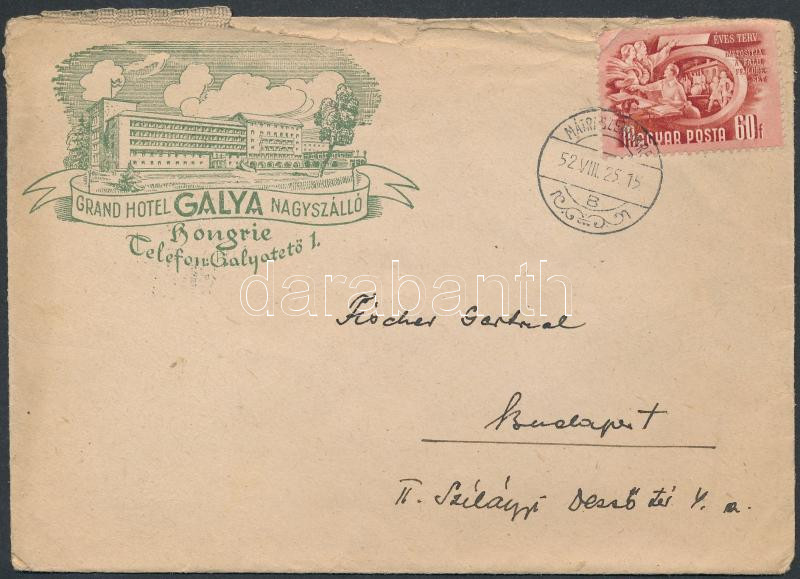 5 ÉVES TERV
A FALU
MAGYAR POSTA 60f
52 VIII. 25. 15
B
GRAND HOTEL GALYA NAGYSZÁLLÓ
Hongrie
Telefon: Galyatető 1.
darabanth
Fischer
Budapest
II. Szilágyi Dezső tér 4. a.